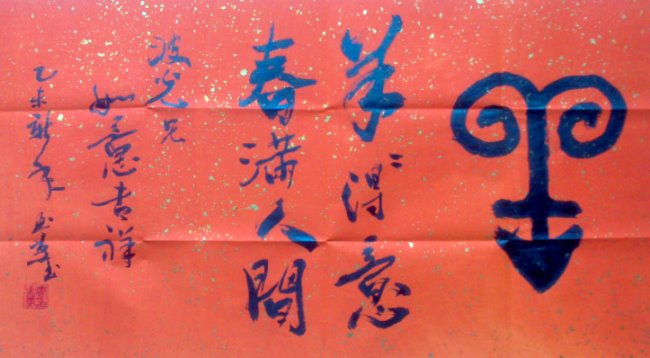 羊〻得意
春满人間
波光兄
如意吉祥
乙未新年